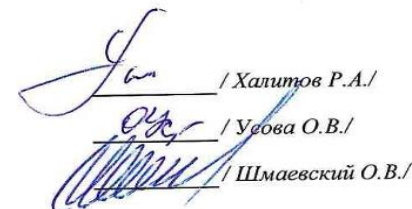 / Халитов Р.А./
/ Усова О.В./
/ Шмаевский О.В./